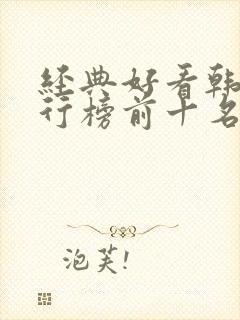 經典好看韓
行榜前十名
泡芙!